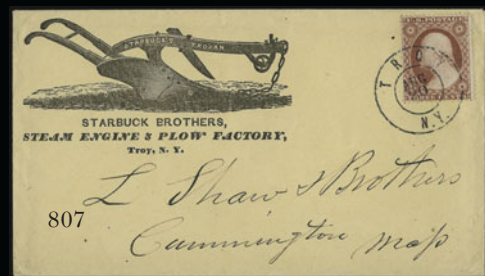 STARBUCK'S TROJAN
STARBUCK BROTHERS,
STEAM ENGINE & PLOW FACTORY,
Troy, N. Y.
U.S. POSTAGE
TROY
N.Y.
L Shaw & Brothers
Cummington Mass
807